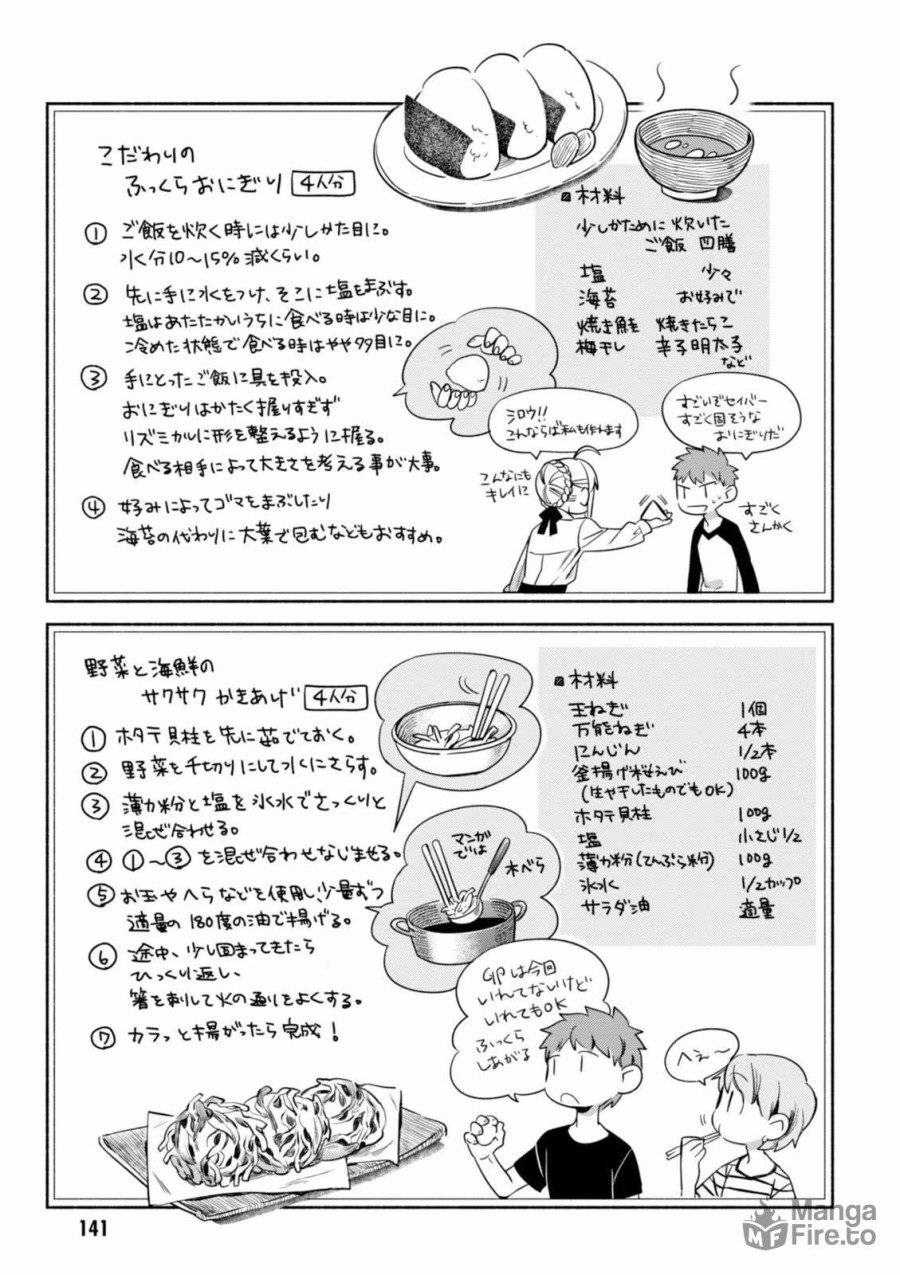 こだわりの
ふっくらおにぎり 4人分
① ご飯を炊く時には少しかた目に。
水分10〜15%減くらい。
② 先に手に水をつけ、そこに塩をまぶす。
塩はあたたかいうちに食べる時は少な目に。
冷めた状態で食べる時はやや多目に。
③ 手にとったご飯に具を投入。
おにぎりはかたく握りすぎず
リズミカルに形を整えるように握る。
食べる相手によって大きさを考える事が大事。
④ 好みによってゴマをまぶしたり
海苔の代わりに大葉で包むなどもおすすめ。
材料
少しかために炊いた
ご飯 四膳
塩 少々
海苔 お好みで
焼き鮭 焼きたらこ
梅干し 辛子明太子
など
シロウ!!
これならば私も作れます
こんなにも
キレイに
すごいぞセイバー
すごく固そうな
おにぎりだ
すごく
さんかく
野菜と海鮮の
サクサクかきあげ 4人分
① ホタテ貝柱を先に茹でておく。
② 野菜を千切りにして水にさらす。
③ 薄力粉と塩を氷水でさっくりと
混ぜ合わせる。
④ ①〜③を混ぜ合わせなじませる。
⑤ お玉やへらなどを使用し、少量ずつ
適量の180度の油で揚げる。
⑥ 途中、少し固まってきたら
ひっくり返し、
箸を刺して火の通りをよくする。
⑦ カラっと揚がったら完成!
マンガ
では
木べら
材料
玉ねぎ 1個
万能ねぎ 4本
にんじん 1/2本
釜揚げ桜えび 100g
(生や干したものでもOK)
ホタテ貝柱 100g
塩 小さじ1/2
薄力粉(てんぷら粉) 100g
氷水 1/2カップ
サラダ油 適量
GPは今回
いれてないけど
いれてもOK
ふっくら
しあがる
へぇ〜
141
Manga
Fire.to
MF